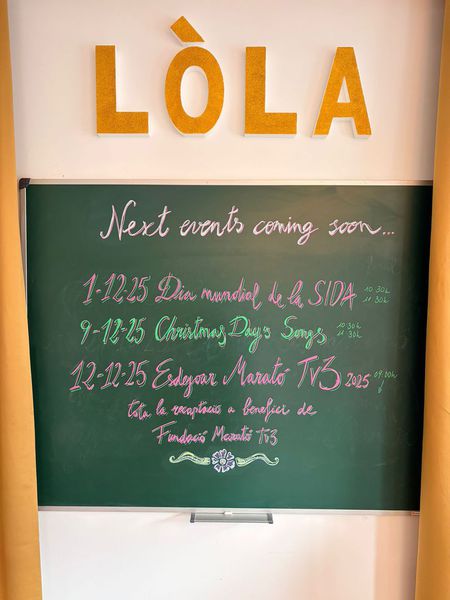 LÒLA
Next events coming soon...
1-12-25 Dia mundial de la SIDA 10:30h
11:30h
9-12-25 Christmas Day's Songs 10:30h
11:30h
12-12-25 Esdejoar Marató TV3 2025 09:00h
tota la recaptació a benefici de
Fundació Marató TV3